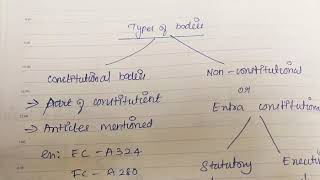 Types of bodies
Constitutional bodies
Non-constitutional
→ Part of constitutient
or
Extra constitutiona
→ Articles mentioned
en: EC - A324
FC - A280
Statutory
Executive